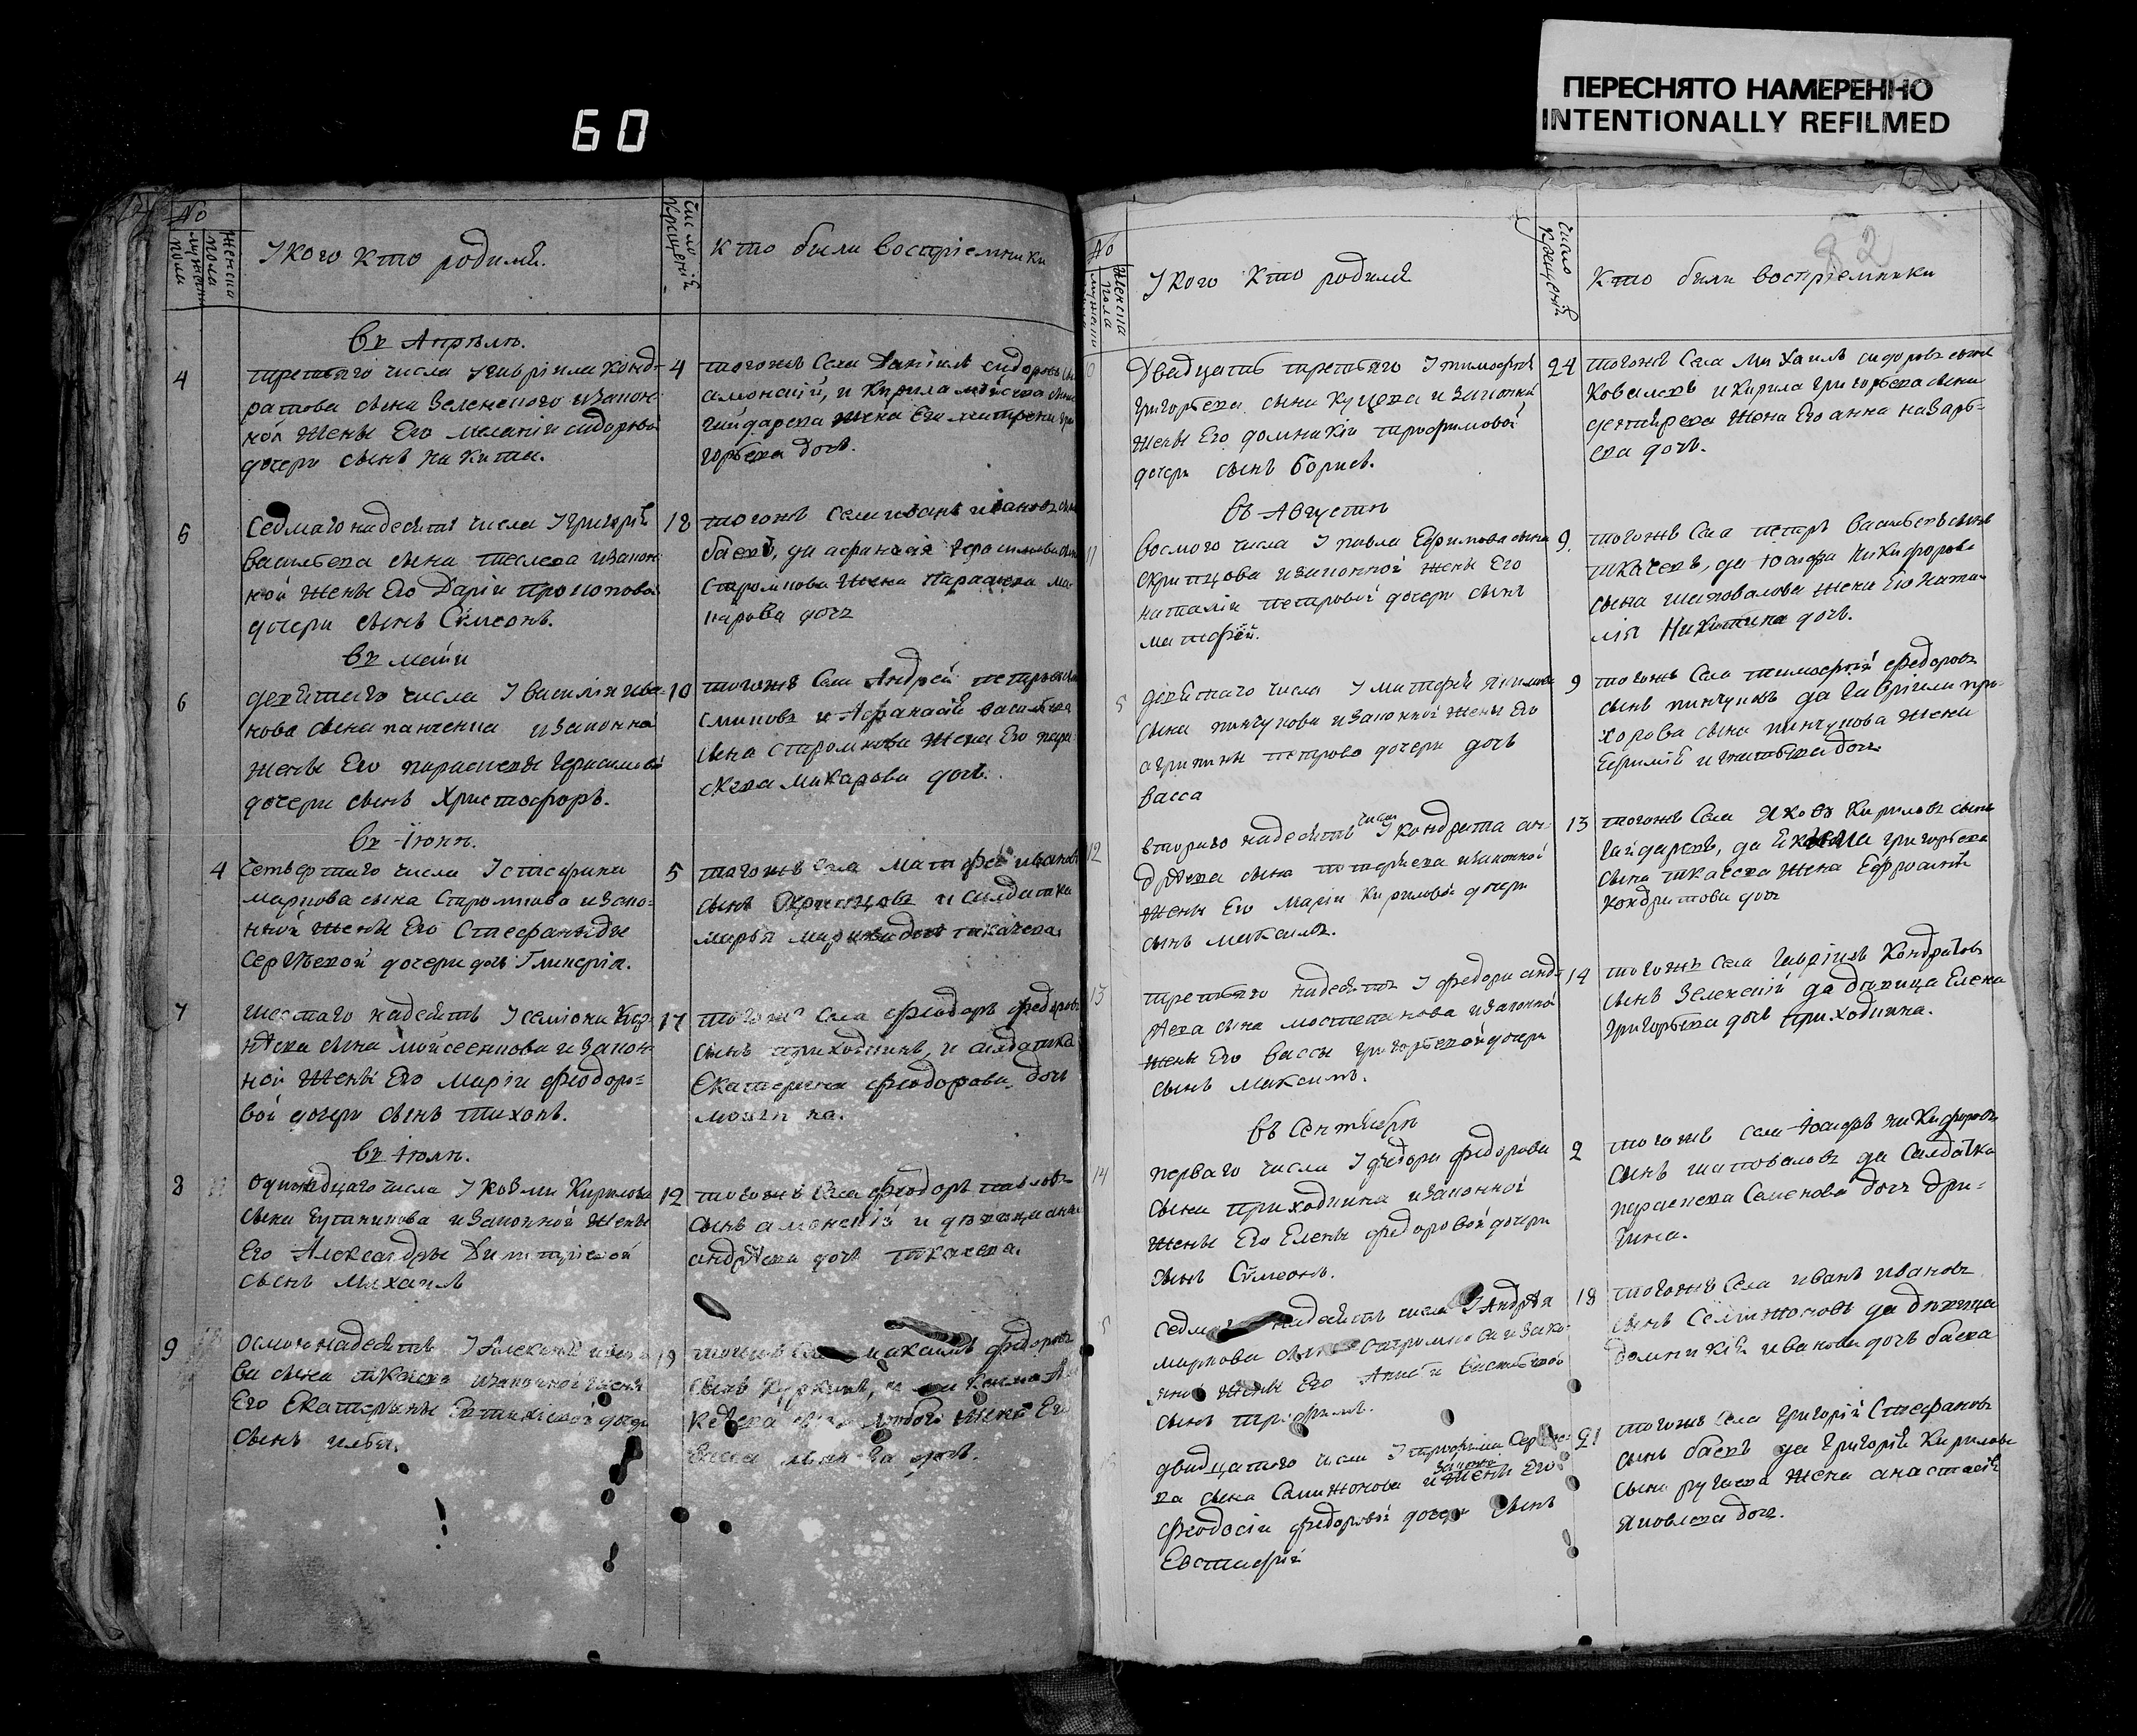 60
ПЕРЕСНЯТО НАМЕРЕННО
INTENTIONALLY REFILMED
82
№
мужеска пола
женска пола
У кого кто родился.
число крещеній
кто были воспріемники
въ Апрѣлѣ.
4
третьяго числа У гавріила конд-
ратова сына Зеленского и закон
ной жены Его меланіи сидоровой
дочери сынъ никита.
4
тогожъ села Даніилъ сидоровъ сынъ
амонскій, и кирила
гайдарева жена Его матрена гри
горьева дочь.
5
Седмаго надесять числа У григорія
васильева сына теслева и закон
ной жены Его Даріи прокоповой
дочери сынъ Сѵмеонъ.
18
тогожъ села иванъ ивановъ сынъ
баевъ, да афанасія герасимова
Старомнова жена Параскева ма
карова дочь
въ маіи
6
девятаго числа У василія ива-
нова сына панченка и законной
жены Его параскевы герасимовой
дочери сынъ Христофоръ.
10
тогожъ села Андрей петровъ сынъ
и Афанасія васильева
сына жена Его пара
скева макарова дочь.
въ Іюнѣ.
4
Четвертаго числа У стефана
маркова сына и зако-
нной жены Его Стефаниды
Сергѣевой дочери дочь Гликерія.
5
тогожъ села матфей ивановъ
сынъ Скрипцовъ и салдатка
марья дочь ткачева
7
шестаго надесять У семіона Кор-
нѣева сына мойсеенкова и закон
ной жены Его маріи феодоро=
вой дочери сынъ тихонъ.
17
тогожъ села феодоръ федоровъ
сынъ приходкинъ, и салдатка
Екатерина феодорова дочь
въ Іюлѣ.
8
одинадцаго числа У козми кирилова
сына и законной жены
Его Александры Димитріевой
сынъ михаилъ
12
тогожъ села феодоръ павловъ
сынъ амонскій и дѣвица анна
андрѣева дочь ткачева.
9
осмого надесять У Алексѣя
ва сына ткачева и законной жены
Его Екатерины дочери
сынъ илья.
19
тогожъ села максимъ федоровъ
сынъ
жена Его
дочь.
№
мужеска
женска пола
У кого кто родился
число крещеній
кто были воспріемники
10
Двадцать третьяго У тимофея
григорьева сына куцева и законной
жены Его домникіи трофимовой
дочери сынъ борисъ.
24
тогожъ села михаилъ сидоровъ сынъ
Ковалевъ и кирила григорьева сына
жена Его анна назарь-
ева дочь.
въ Августѣ
11
восмого числа У павла Ефимова сына
скрипцова и законной жены Его
наталіи петровой дочери сынъ
матфей.
9
тогожъ села петръ васильевъ сынъ
ткачевъ, да Іосифа никифорова
сына шаповалова жена Его ната
лія Никитина дочь.
5
девятаго числа У матфея
сына пинчукова и законной жены Его
агрипины петрово дочери дочь
васса
9
тогожъ села тимофей федоровъ
сынъ пинчуковъ да гавріила про-
хорова сына пинчукова жена
Ефимія игнатьева дочь
12
второго надесять числа У кондрата ан-
дрѣева сына и законной
жены Его маріи кириловой дочери
сынъ максимъ.
13
тогожъ села Яковъ кириловъ сынъ
гайдаревъ, да григорьева
сына ткачева жена Ефросинія
кондратова дочь
13
третьяго надесять У федора анд-
рѣева сына мостепанова и законной
жены Его вассы григорьевой дочери
сынъ максимъ.
14
тогожъ села гавріилъ кондратовъ
сынъ Зеленскій да дѣвица Елена
григорьева дочь приходкина.
въ Сентябрѣ
14
перваго числа У федора федорова
сына приходкина и законной
жены Его Елены федоровой дочери
сынъ Сѵмеонъ.
2
тогожъ села Іосифъ никифоровъ
сынъ шаповаловъ да салдатка
параскева Семенова дочь дри=
гина.
надесять числа У Андрѣя
маркова и зако-
нной жены Его васильевой
сынъ трофимъ.
18
тогожъ села иванъ ивановъ
сынъ Селижоновъ да дѣвица
домникія иванова дочь баева
двадцатого числа У трофима Сергѣе-
ва сына Селижонова и законной жены Его
феодосіи федоровой дочери сынъ
Евстафій
21
тогожъ села григорій Стефановъ
сынъ баевъ да григорія кирилова
сына ругаева жена анастасія
Яковлева дочь.